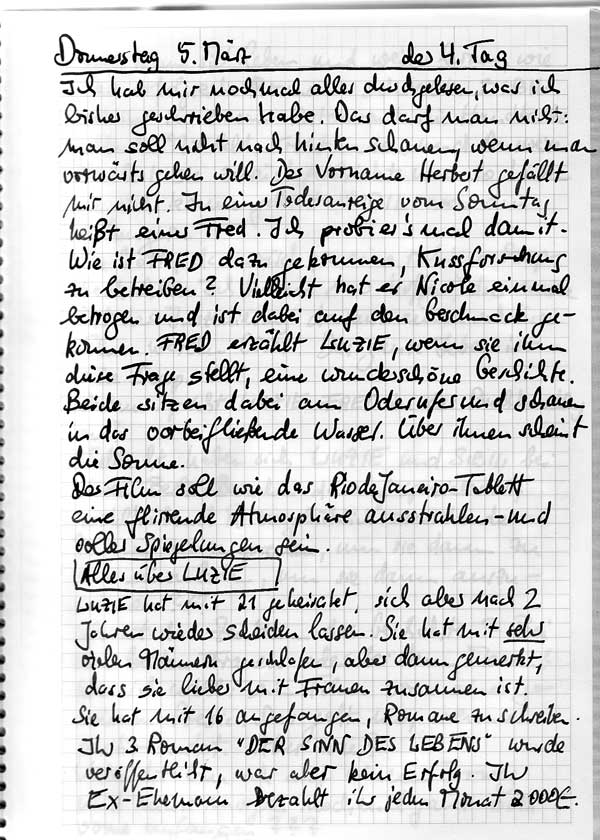 Donnerstag 5. März der 4. Tag
Ich hab mir nochmal alles durchgelesen, was ich
bisher geschrieben habe. Das darf man nicht:
man soll nicht nach hinten schauen, wenn man
vorwärts gehen will. Der Vorname Herbert gefällt
mir nicht. In einer Todesanzeige vom Sonntag
heißt einer Fred. Ich probier's mal damit.
Wie ist FRED dazu gekommen, Kussforschung
zu betreiben? Vielleicht hat er Nicole einmal
betrogen und ist dabei auf den Geschmack ge-
kommen. FRED erzählt LUZIE, wenn sie ihm
diese Frage stellt, eine wunderschöne Geschichte.
Beide sitzen dabei am Oderufer und schauen
in das vorbeifließende Wasser. Über ihnen scheint
die Sonne.
Der Film soll wie das Rio de Janeiro-Tablett
eine flirrende Atmosphäre ausstrahlen - und
voller Spiegelungen sein.
Alles über LUZIE
LUZIE hat mit 21 geheiratet, sich aber nach 2
Jahren wieder scheiden lassen. Sie hat mit sehr
vielen Männern geschlafen, aber dann gemerkt,
dass sie lieber mit Frauen zusammen ist.
Sie hat mit 16 angefangen, Romane zu schreiben.
Ihr 3. Roman "DER SINN DES LEBENS" wurde
veröffentlicht, war aber kein Erfolg. Ihr
Ex-Ehemann bezahlt ihr jeden Monat 2000€.